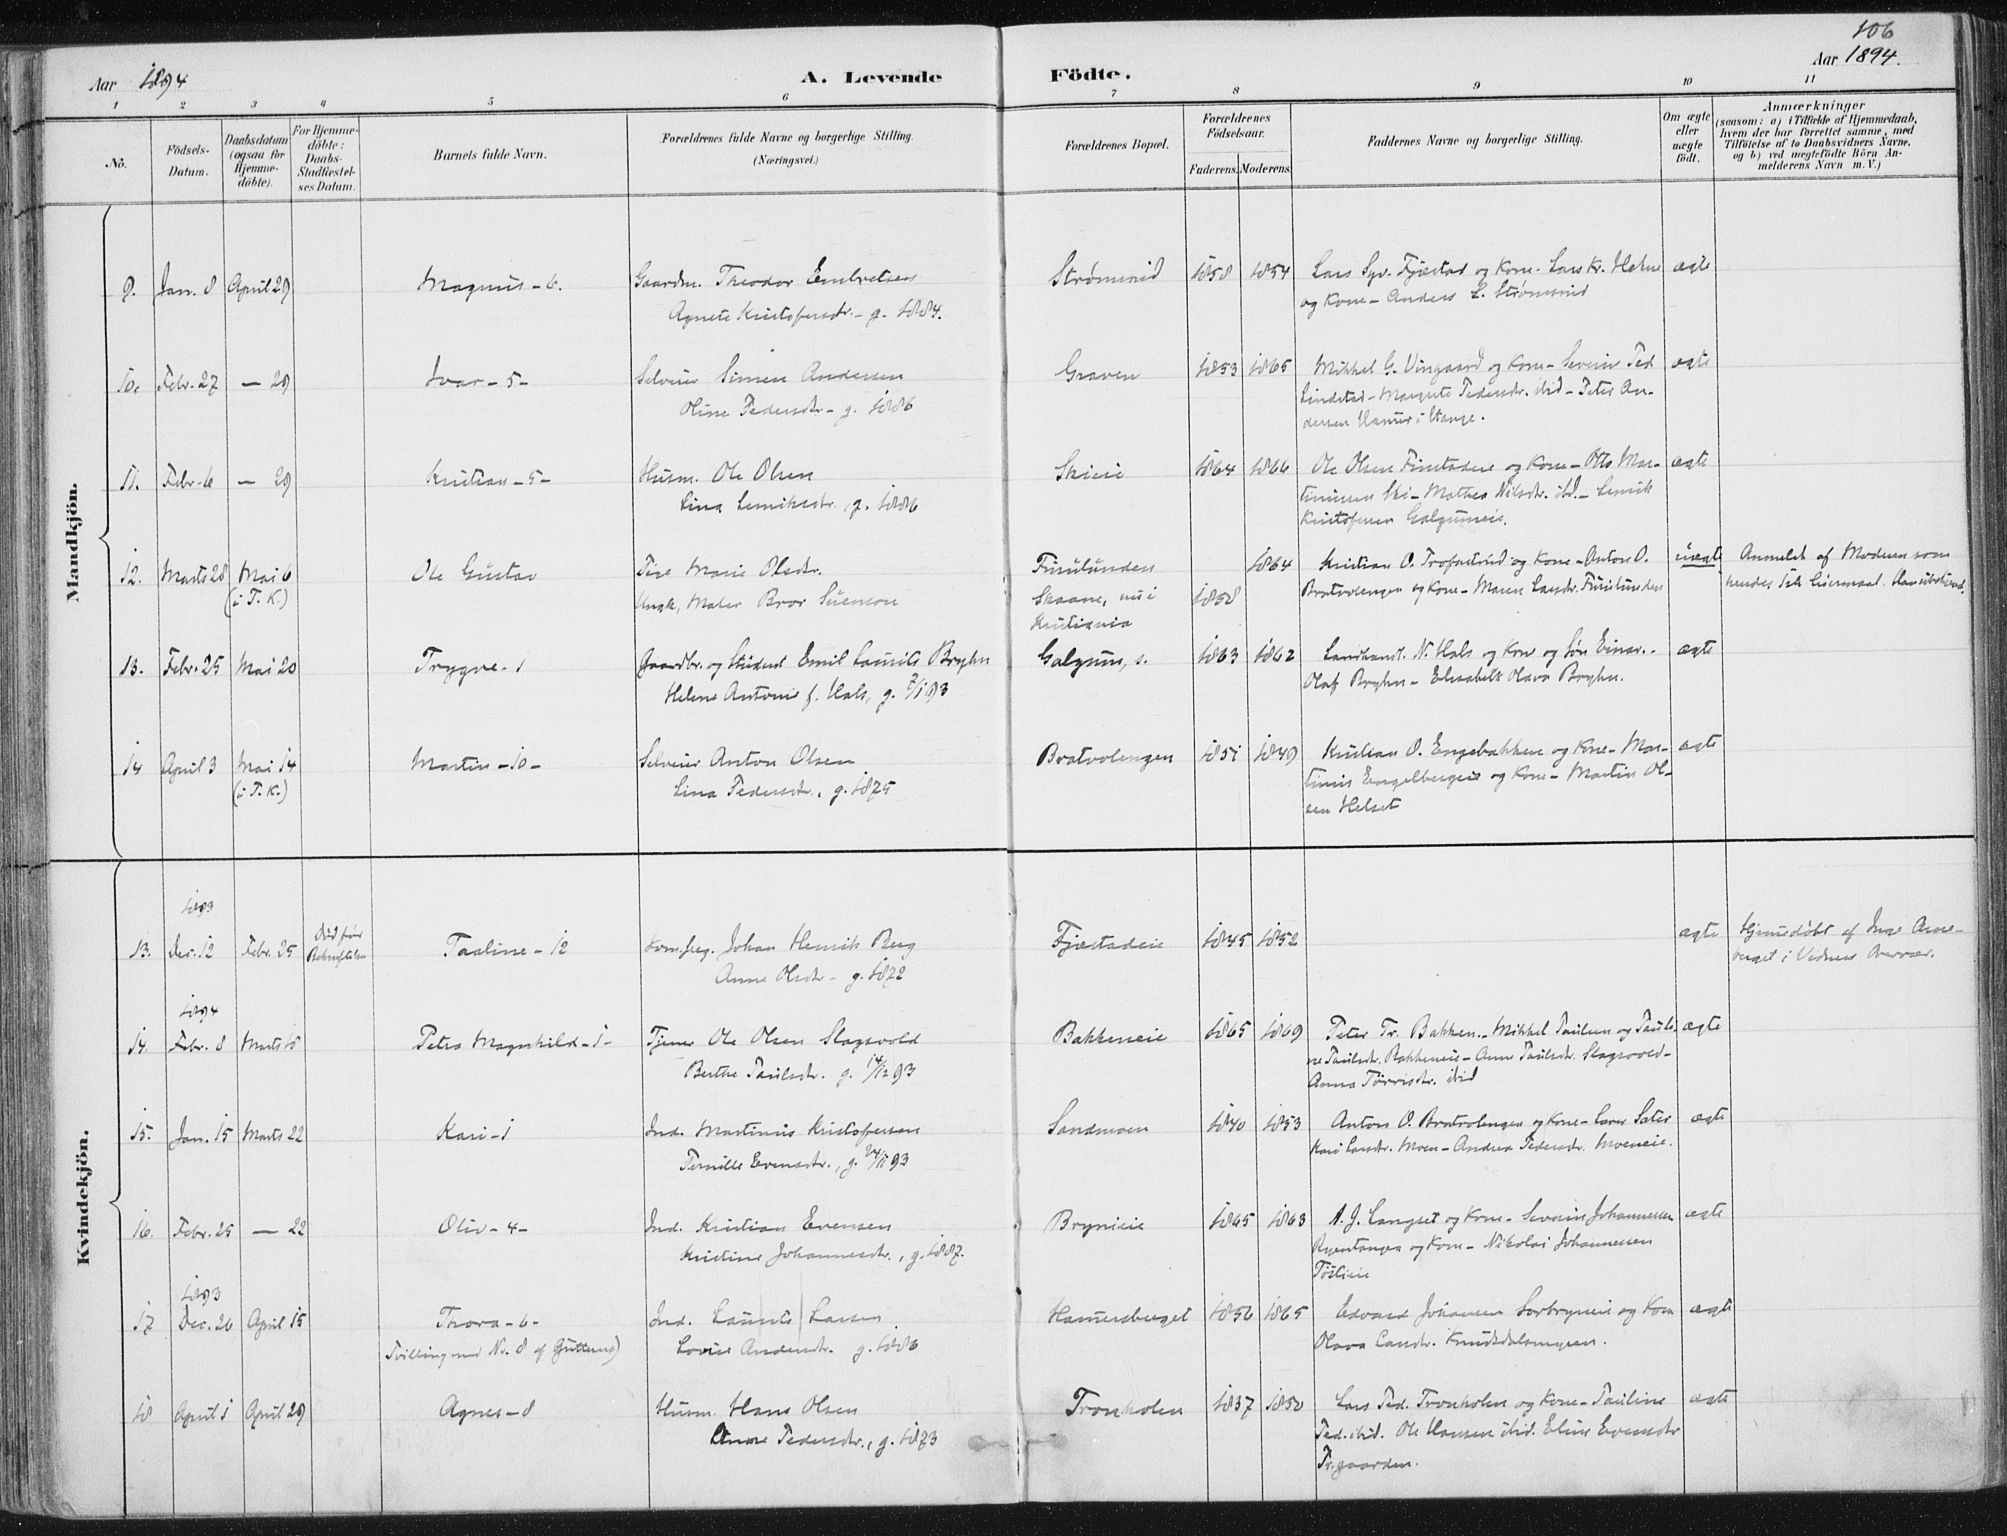 106
Aar 1894
A. Levende Födte.
Aar 1894.
1 2 3 4 5 6 7 8 9 10 11
No.
Födsels-
Datum.
Daabsdatum
(ogsaa for
Hjemme-
döbte).
For Hjemme-
döbte:
Daabs-
Stadfæstel-
ses Datum.
Barnets fulde Navn.
Forældrenes fulde Navne og borgerlige Stilling.
(Næringsvei.)
Forældrenes Bopæl.
Forældrenes
Födselsaar.
Faderens. Moderens.
Faddernes Navne og borgerlige Stilling.
Om ægte
eller
uægte
födt.
Anmærkninger
(saasom: a) i Tilfælde af Hjemmedaab,
hvem der har forrettet samme, med
Tilföielse af to Daabsvidners Navne.
og b) ved uægtefödte Börn An-
melderens Navn m. V.)
Mandkjön.
9. Jan. 8 April 29 Magnus - 6. Gaardm. Theodor Embretsen Strømsnid 1858 1854 Lars Syv. Fjæstad og Kone - Lars Kr. ægte
Agnete Kristofersdtr. - g. 1884. og Kone - Anders L. Strømsnid
10. Febr. 27 — 29 Ivar - 5 - Selveier Simen Andersen Graven 1853 1865 Mikkel G. Vingaard og Kone - Severin Ped ægte
Oline Pedersdtr - g. 1886 Lindstad - Margrete Pedersdtr. ibid - Peter An-
dersen Hamer i Stange.
11. Febr. 6 — 29 Kristian - 5 - Husm. Ole Olsen Skieie 1864 1866 Ole Olsen og Kone - Otto Mar- ægte
Lina Lemiksdtr., g. 1886 tinusen Ski - Mathea Nilsdtr. ibd. - Lemik
Kristofersen Galgumeie.
12. Marts 28 Mai 6 Ole Gustav Marie Olsdtr. Furulunden 1864 Kristian O. og Kone - Anton O. uægte Anmeldt af Moderen som
(i T. K.) Ungk, Maler Bror Suenson Skaane, nu i 1858 Bratvolengen og Kone - Maren Larsdtr. Furulunden hendes
Kristiania
13. Febr. 25 Mai 20 Trygve - 1 Gaardbr. og Student Emil Laurits Bryhn Galgum, s. 1863 1862 Landhandl. N. Hals og Kone og Søn Einar. - ægte
Helene Antonie f. Hals, g. 3/1 93 Olaf Bryhn - Elisabeth Olava Bryhn.
14 April 3 Mai 14 Martin - 10 - Selveier Anton Olsen Bratvolengen 1851 1849 Kristian O. Engebakken og Kone - Mar- ægte
(i T. K.) Lina Pedersdtr., g. 1875 tinus Engelbergeie og Kone - Martin Ol-
sen Helset
Kvindekjön.
1893
13. Dec. 12 Febr. 25 Død før Paaline - 12 Johan Henrik Berg Fjæstadeie 1845 1852 ægte Hjemmedøbt af Inge Arne-
Bekræftelsen Anne Olsdtr - g. 1872 berget i Vidners Overvær.
1894
14. Febr. 8 Marts 18 Petra Magnhild - 1 - Tjener Ole Olsen Slagsvold Bakkeneie 1865 1869 Peter Tr. Bakken. - Mikkel Paulsen og Pauli- ægte
Berthe Paulsdtr. g. 14/12 93 ne Paulsdtr. Bakkeneie - Anne Paulsdtr. Slagsvold -
Anna Tørrisdtr. ibid
15. Jan. 15 Marts 22 Kari - 1 Ind. Martinus Kristofersen Sandmoen 1840 1853 Anton O. Bratvolengen og Kone - Lars ægte
Pernille Evensdtr., g. 24/11 93 Kari Larsdtr. Moen - Andrea Pedersdtr. Moeneie.
16. Febr. 25 — 22 Oliv - 4 - Ind. Kristian Evensen Brynieie 1865 1863 A. J. Langset og Kone - Severin Johannessen ægte
Kristine Johannesdtr., g. 1887. Ryentangen og Kone - Nikolai Johannessen
1893
17 Dec. 26 April 15 Thora - 6 - Ind. Laurits Larsen Hamersberget 1856 1865 Edvard Johansen Sorbrynieie og Kone ægte
Tvilling med No. 8 af Guttene) Lovise Andersdtr. g. 1886 Olava Larsdtr.
18 April 1 April 29 Agnes - 8 Husm. Hans Olsen Tronholen 1837 1850 Lars Ped. Tronholen og Kone - Pauline ægte
Anne Pedersdtr., g. 1873 Ped. ibid. Ole Hansen ibid. Eline Evensdtr
Tr.gaarden.